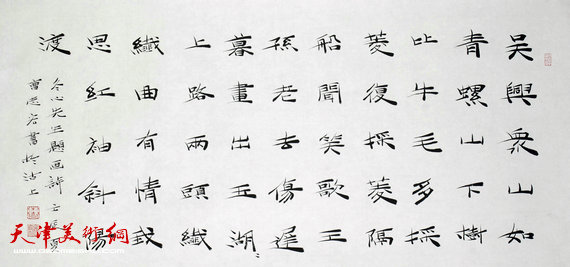 吳興眾山如
青螺山下樹
比牛毛多採
菱復採菱隔
船聞笑歌王
孫老去傷遲
暮畫出玉湖〻
上路兩頭纖
纖曲有情我
思紅袖斜陽
渡
冬心先生題画詩
書於沽上
天津美術網